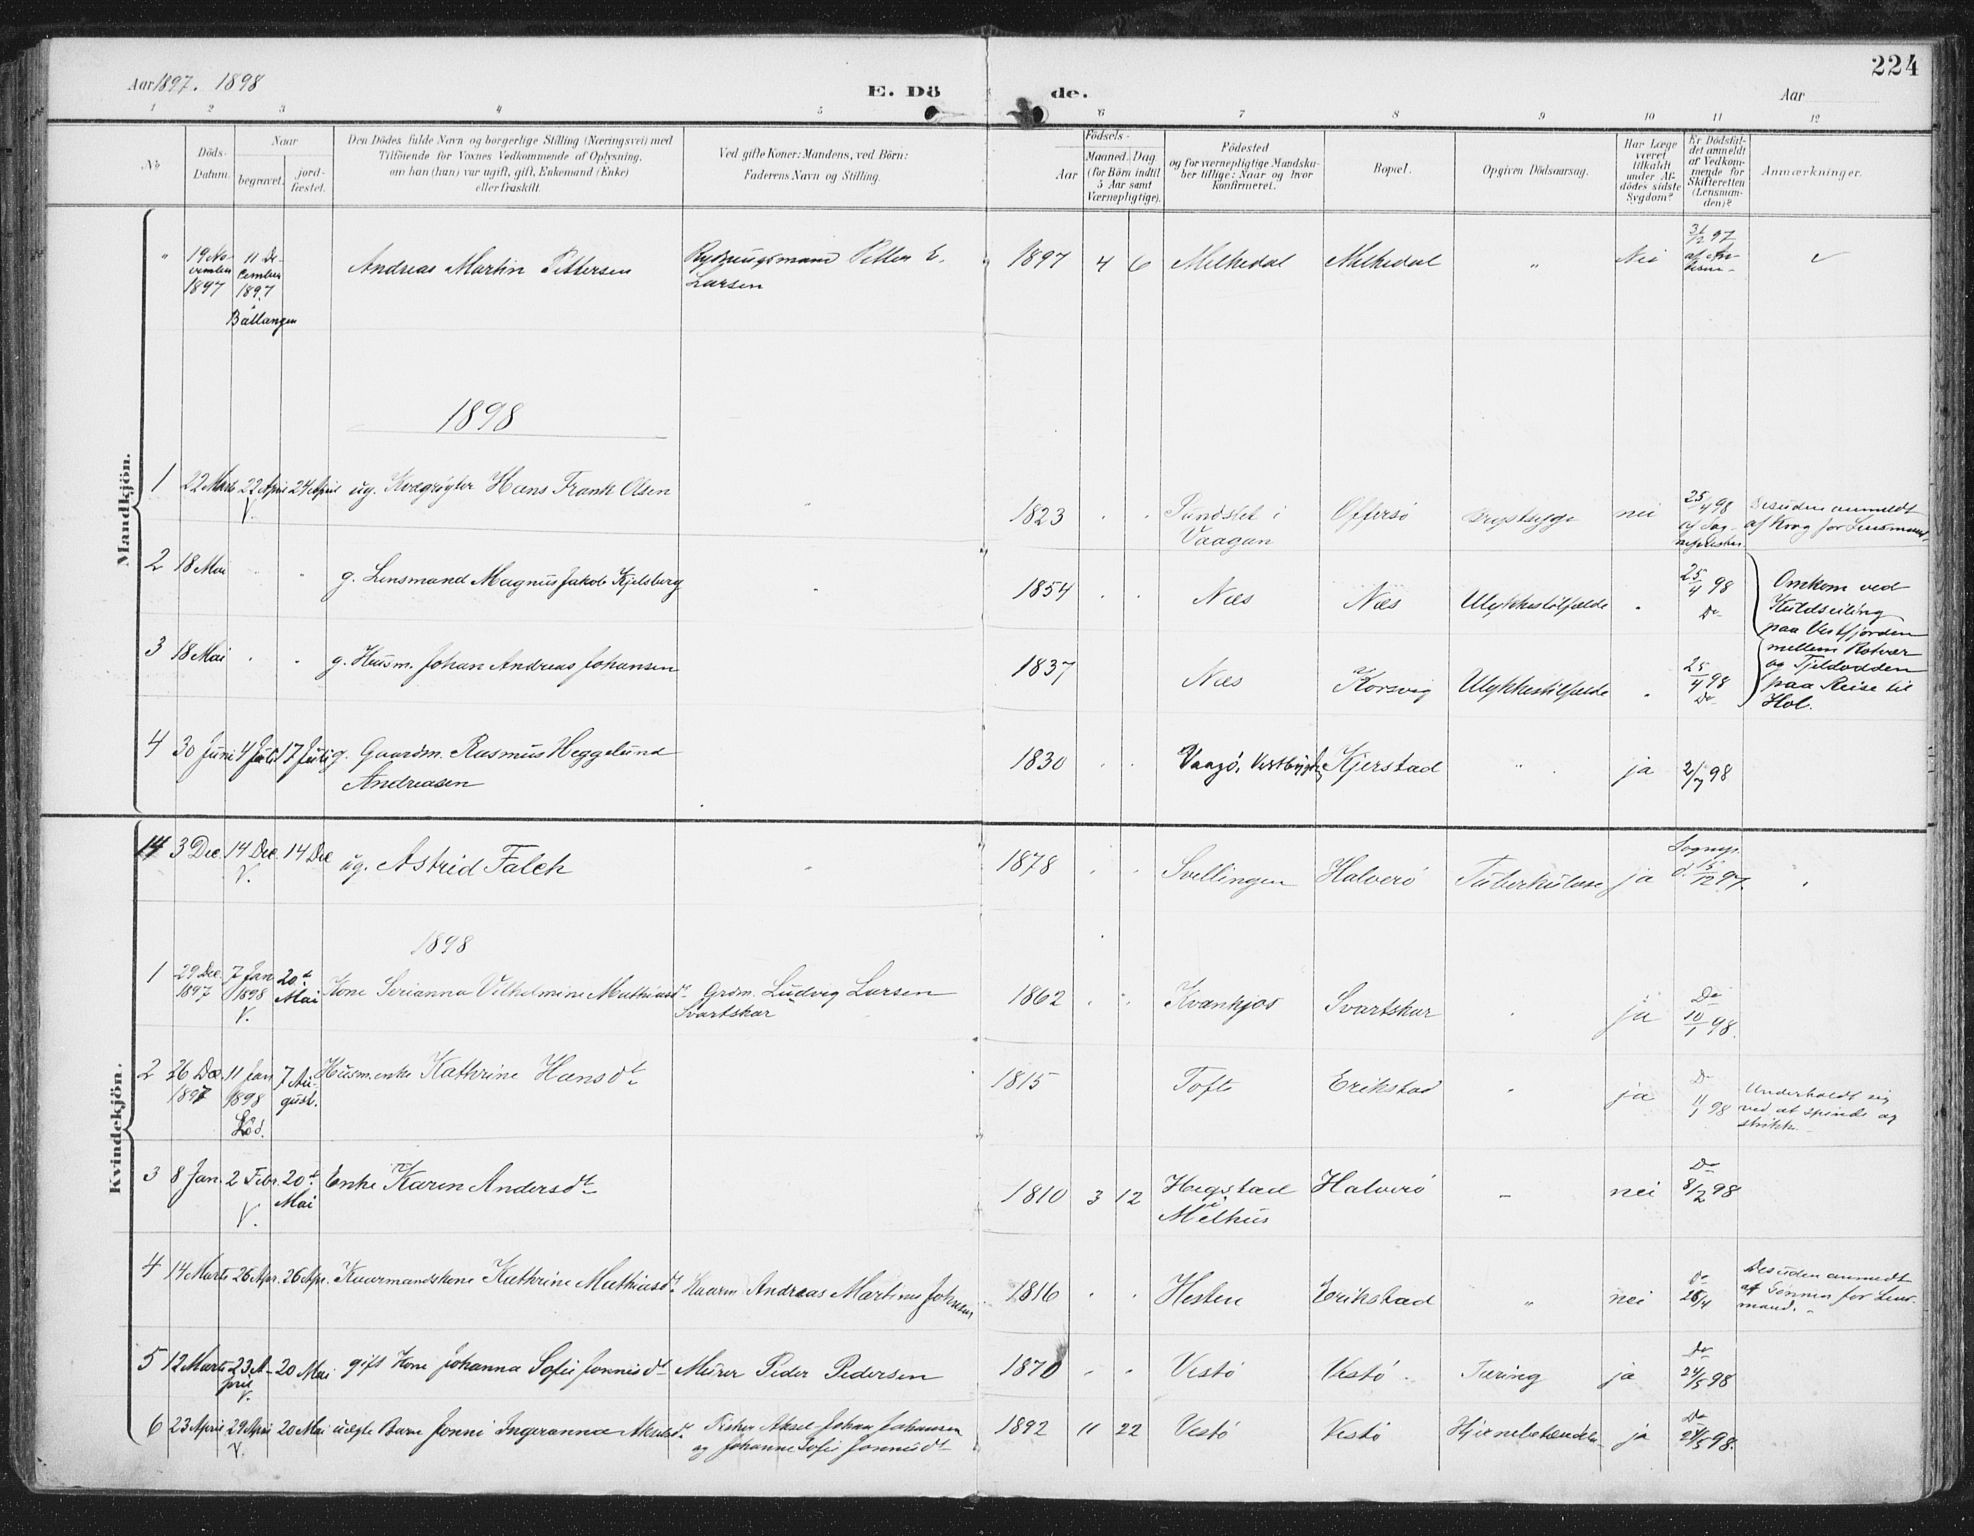 224
Aar 1897. 1898
E. Dö de.
Aar
1 2 3 4 5 6 7 8 9 10 11 12
No
Döds-
Datum.
Naar
begravet.
jord-
fæstet.
Den Dödes fulde Navn og borgerlige Stilling (Næringsvei) med
Tilföiende for Voxnes Vedkommende af Oplysning,
om han (hun) var ugift, gift, Enkemand (Enke)
eller fraskilt.
Ved gifte Koner: Mandens, ved Börn:
Faderens Navn og Stilling.
Födsels-
Aar
Maaned. Dag
(for Börn indtil
5 Aar samt
Værnepligtige).
Födested
og for værnepligtige Mandska-
ber tillige: Naar og hvor
Konfirmeret.
Bopæl.
Opgiven Dödsaarsag.
Har Læge
været
tilkaldt
under Af-
dödes sidste
Sygdom?
Er Dödsfal-
det anmeldt
af Vedkom-
mende for
Skifteretten
(Lensman-
den)?
Anmærkninger.
Mandkjön.
" 19 No-
vember
1897 11 De-
cember
1897
Ballangen Andreas Martin Pettersen Petter E.
Larsen 1897 4 6 Melkedal Melkedal " Nei 31/12 97
1898
1 22 Marts 22 April 24 April ug. Hans Frank Olsen 1823 Sundslet i
Vaagan Offersø Brystsyge nei 25/4 98 Desuden anmeldt
af for Lensmand.
V.
2 18 Mai " g. Lensmand Magnus Jakob Kjelsberg 1854 Næs Næs Ulykkestilfælde 25/4 98
Do
Omkom ved
Kuldseiling
paa Vestfjorden
mellem Rotvær
og Tjeldodden
paa Reise til
Hol.
3 18 Mai g. Husm. Johan Andreas Johansen 1837 Næs Korsvig Ulykkestilfælde 25/4 98
Do
4 30 Juni 4 Juli 17 Juli g. Gaardm. Rasmus Heggelund
Andreasen 1830 Kjerstad " ja 2/7 98
Kvindekjön.
14 3 Dec. 14 Dec. 14 Dec ug. Astrid Falch 1878 Svellingen Halverø Tuberkulose ja Sognep.
d. 15/12 97.
V.
1898
1 29 Dec.
1897 7 Jan.
1898
V. 20d
Mai Kone Serianna Vilhelmine Mathiasdt. Grdm. Ludvig Larsen
Svartskar 1862 Kvankjos Svartskar ja Do
10/1 98.
2 26 Dec.
1897 11 Jan
1898
Lød. 7 Au-
gust. Husm.enke Kathrine Hansdt. 1815 Tofte Erikstad ja Do
11/1 98 Underholdt sig
ved at spinde og
strikke.
3 8 Jan. 2 Febr.
V. 20d.
Mai Enke Karen Andersdt. 1810 3 12 Hegstad
i
Melhus Halverø - nei Do
8/2 98
4 14 Marts 26 Apr. 26 Apr. Kaarmandskone Kathrine Mathiasdt. Kaarm. Andreas Martinus Johnsen 1816 Hesten Erikstad " nei Do
26/4 Desuden anmeldt
af Sønnen for Lens-
mand.
5 12 Marts 23 A-
pril
V. 20 Mai gift Kone Johanna Sofie Jonnisdt. Murer Peder Pedersen 1870 Vestø Vestø Tæring ja Do
24/5 98
6 23 April 29 April
V. 20 Mai uægte Barn Jonni Ingeranna Akselsdt. Fisker Aksel Johan Johansen
og Johanne Sofie Jonnisdt 1892 11 22 Vestø Vestø Hjernebetændelse ja Do
24/5 98.